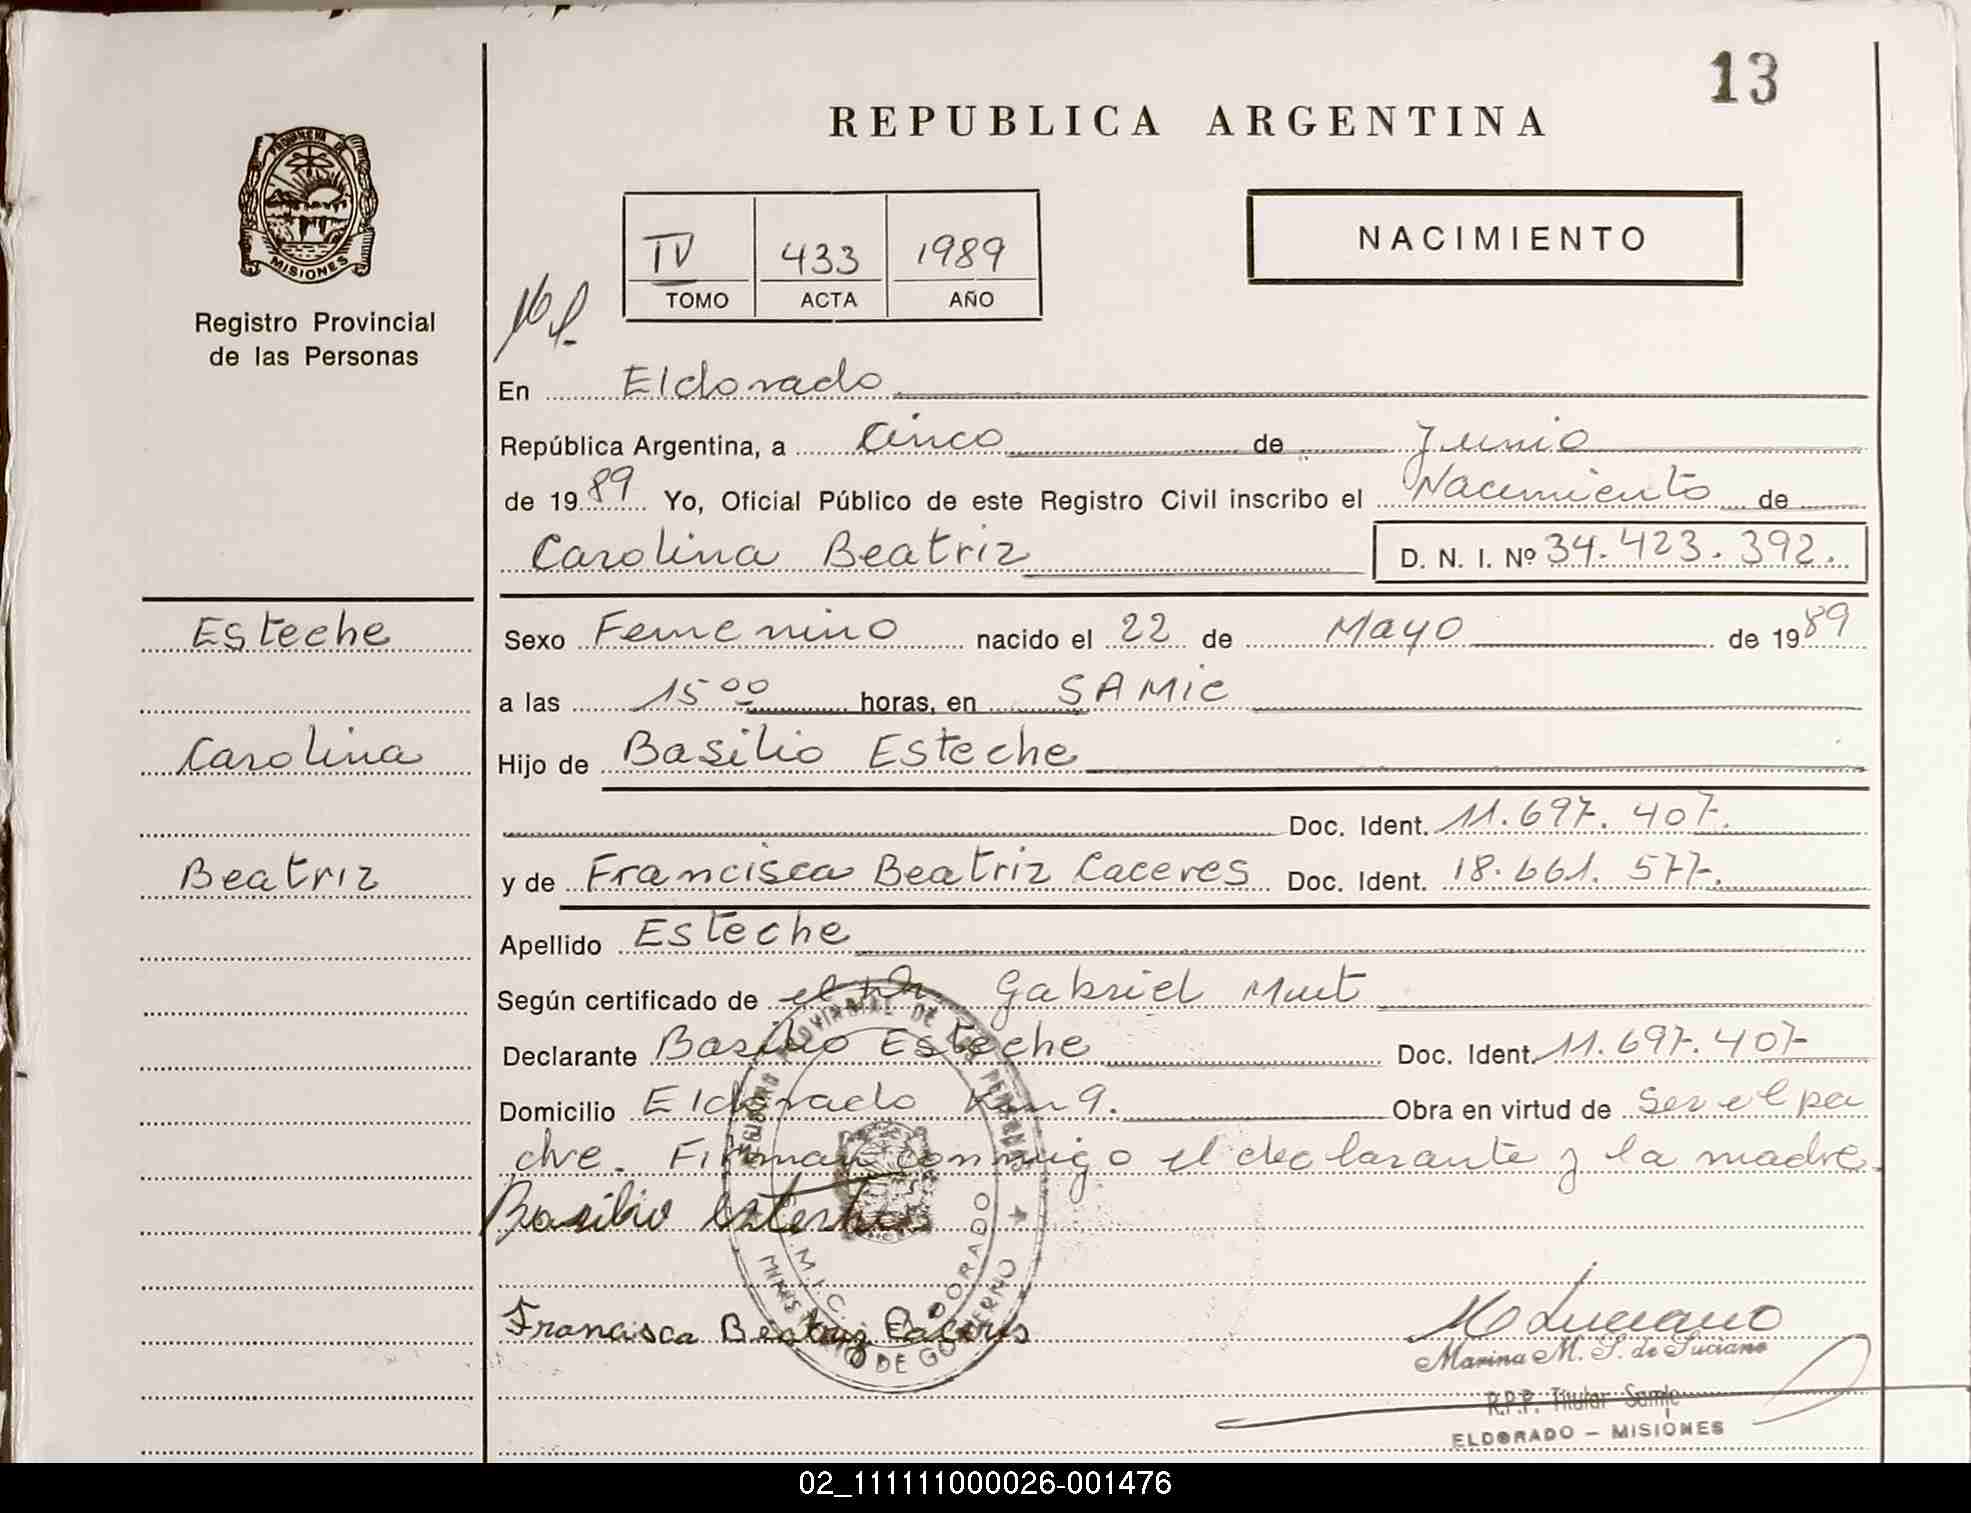 13
REPUBLICA ARGENTINA
PROVINCIA DE
MISIONES
Registro Provincial
de las Personas
IV 433 1989
TOMO ACTA AÑO
NACIMIENTO
En Eldorado
República Argentina, a Cinco de Junio
de 1989 Yo, Oficial Público de este Registro Civil inscribo el Nacimiento de
Carolina Beatriz D. N. I. Nº 34.423.392.
Esteche
Carolina
Beatriz
Sexo Femenino nacido el 22 de Mayo de 1989
a las 15 00 horas, en SAMIC
Hijo de Basilio Esteche
Doc. Ident. 11.697.407.
y de Francisca Beatriz Caceres Doc. Ident. 18.661.577.
Apellido Esteche
Según certificado de el Dr. Gabriel
Declarante Basilio Esteche Doc. Ident. 11.697.407
Domicilio Eldorado Km 9. Obra en virtud de ser el pa
dre. Firman conmigo el declarante y la madre.
Basilio Esteche
Francisca Beatriz Caceres
Luciano
Marina M. S. de Luciano
R.P.P. Titular Samic
ELDORADO - MISIONES
MINISTERIO DE GOBIERNO
02_111111000026-001476